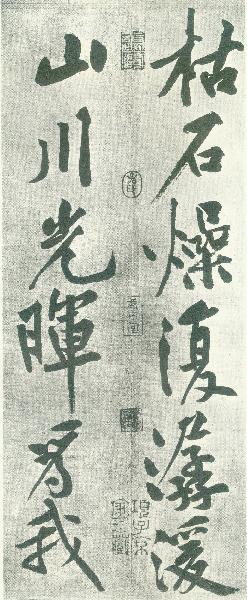 枯石燥復潺湲
山川光暉爲我